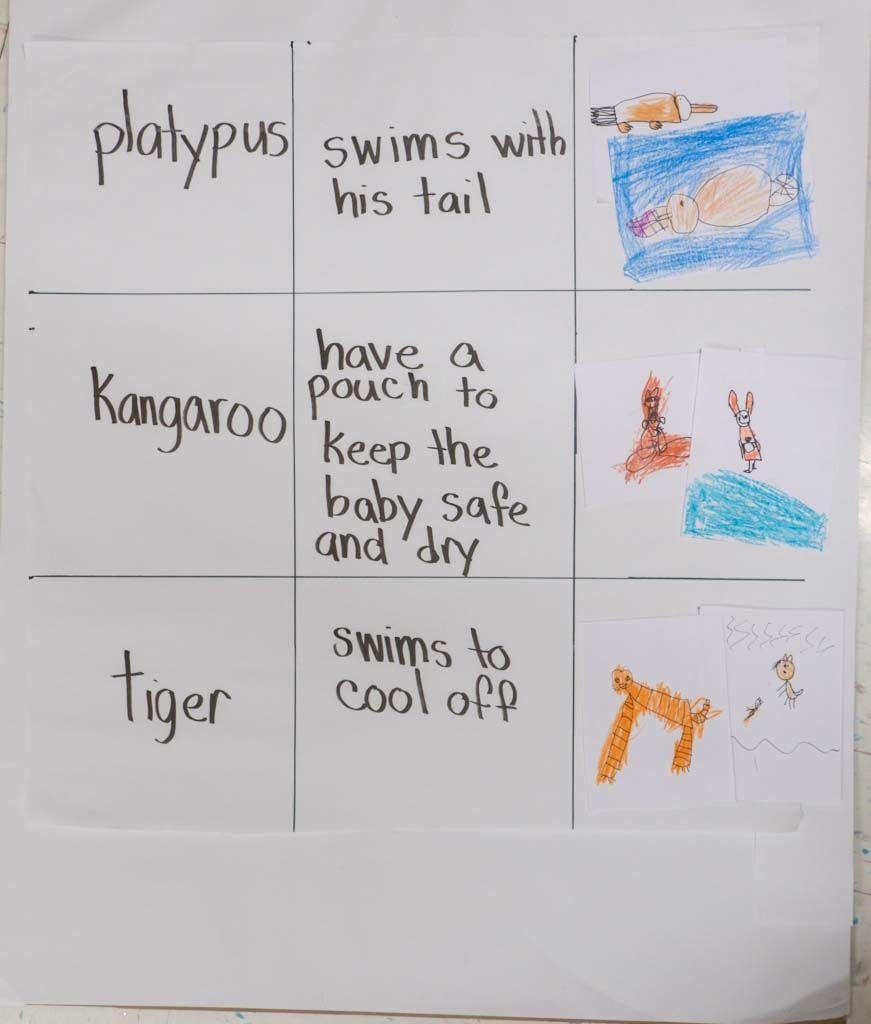 platypus
swims with
his tail
Kangaroo
have a
pouch to
keep the
baby safe
and dry
tiger
swims to
cool off